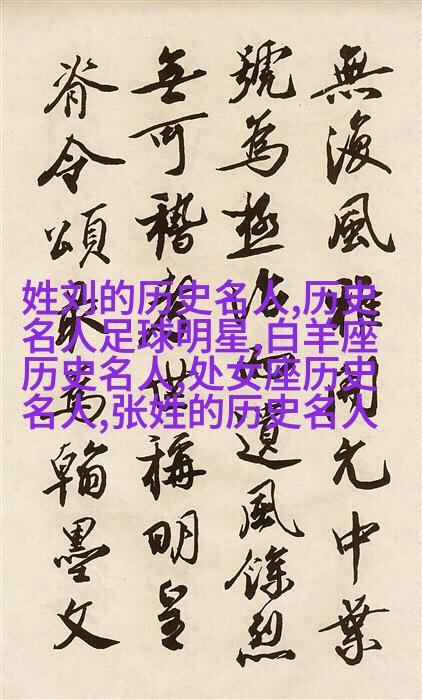 無復風雅開元中葉
號為極治遺風餘烈
無可稽僅稱明皇
脊令頌為翰墨文
姓刘的历史名人,历史
名人足球明星,白羊座
历史名人,处女座历史
名人,张姓的历史名人